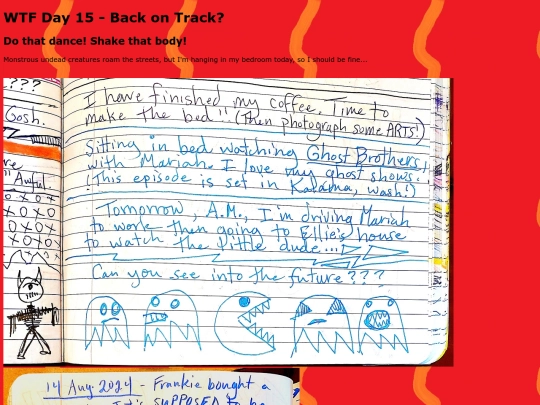 WTF Day 15 - Back on Track?
Do that dance! Shake that body!
Monstrous undead creatures roam the streets, but I'm hanging in my bedroom today, so I should be fine...
???
Gosh.
Awful.
I have finished my coffee. Time to
make the bed!! (Then photograph some ARTS!)
Sitting in bed watching Ghost Brothers,
with Mariah. I love my ghost shows.
(This episode is set in Kalama, Wash!)
Tomorrow, A.M., I'm driving Mariah
to work then going to Ellie's house
to watch the little dude...
Can you see into the future???
14 Aug. 2024 - Frankie bought a
It's SUPPOSED to be